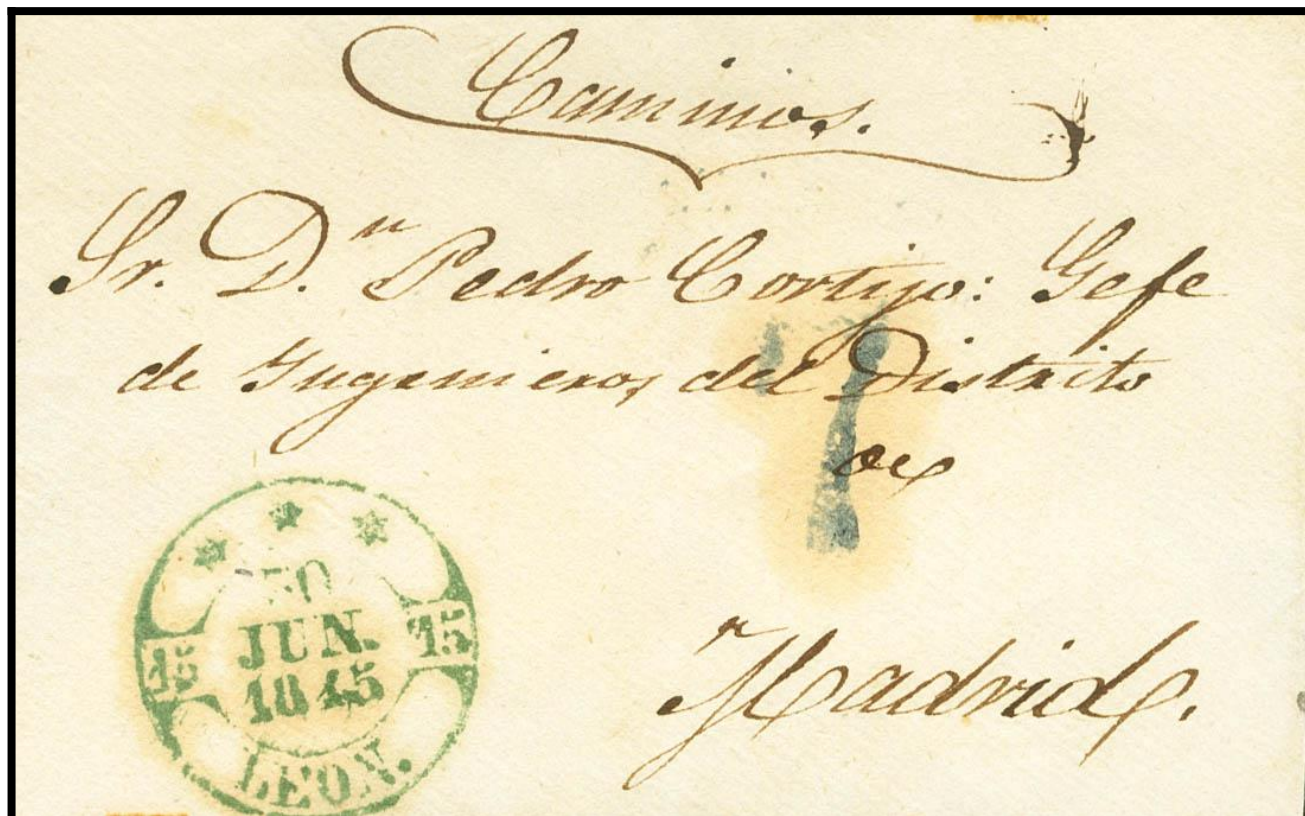 Caminos.
Sr. D.n Pedro Cortijo: Gefe
de Yngenieros del Distrito
de
Madrid.
30
JUN.
1845
15
15
LEON.